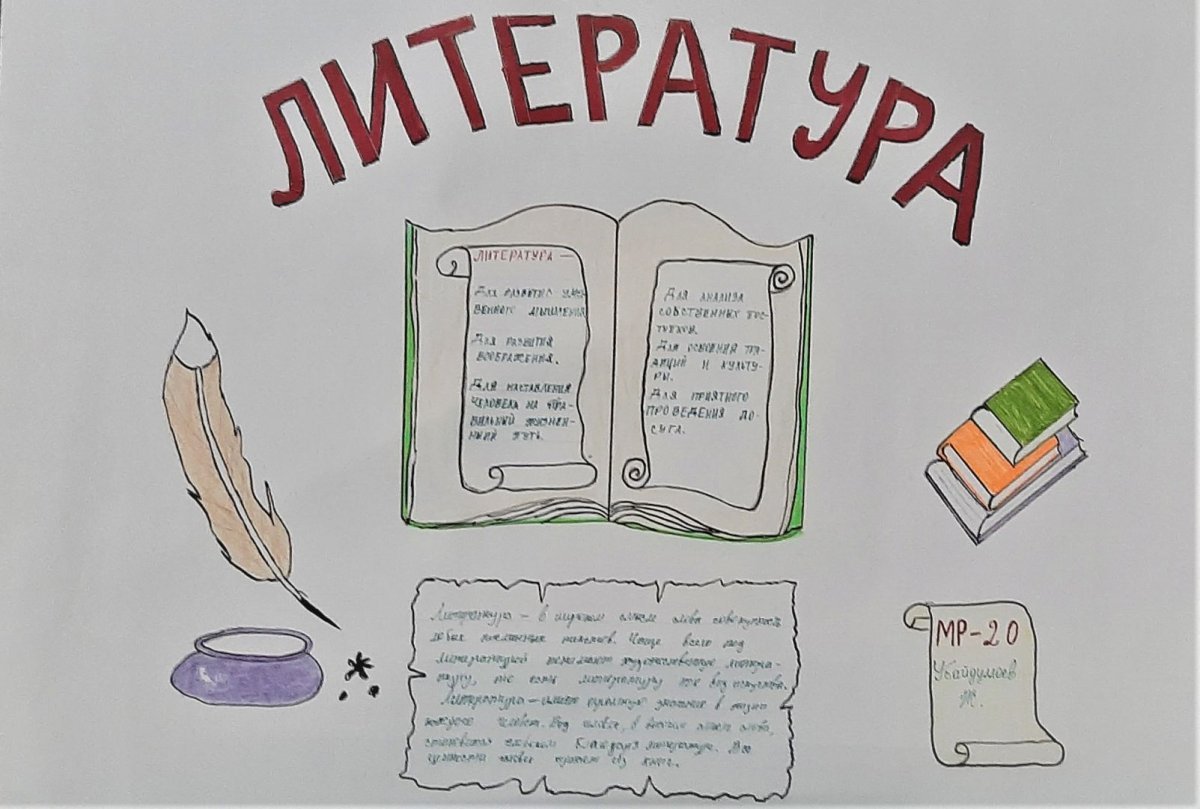 ЛИТЕРАТУРА
ЛИТЕРАТУРА —
Для развития умс-
венного мышления
Для развития
воображения.
Для наставления
человека на пра-
вильный жизнен-
ный путь.
Для анализа
собственных пос-
тупков.
Для освоения тра-
диций и культу-
ры.
Для приятного
проведения до-
суга.
Литература — в широком смысле слова совокупность
любых письменных текстов. Чаще всего под
литературой понимают художественную литера-
туру, то есть литературу как вид искусства.
Литература — имеет огромное значение в жизни
каждого человека. Ведь человек, в полном смысле слова,
становится человеком благодаря литературе. Все
ценности человек черпает из книг.
МР-20
Убайдуллоев
Ж.